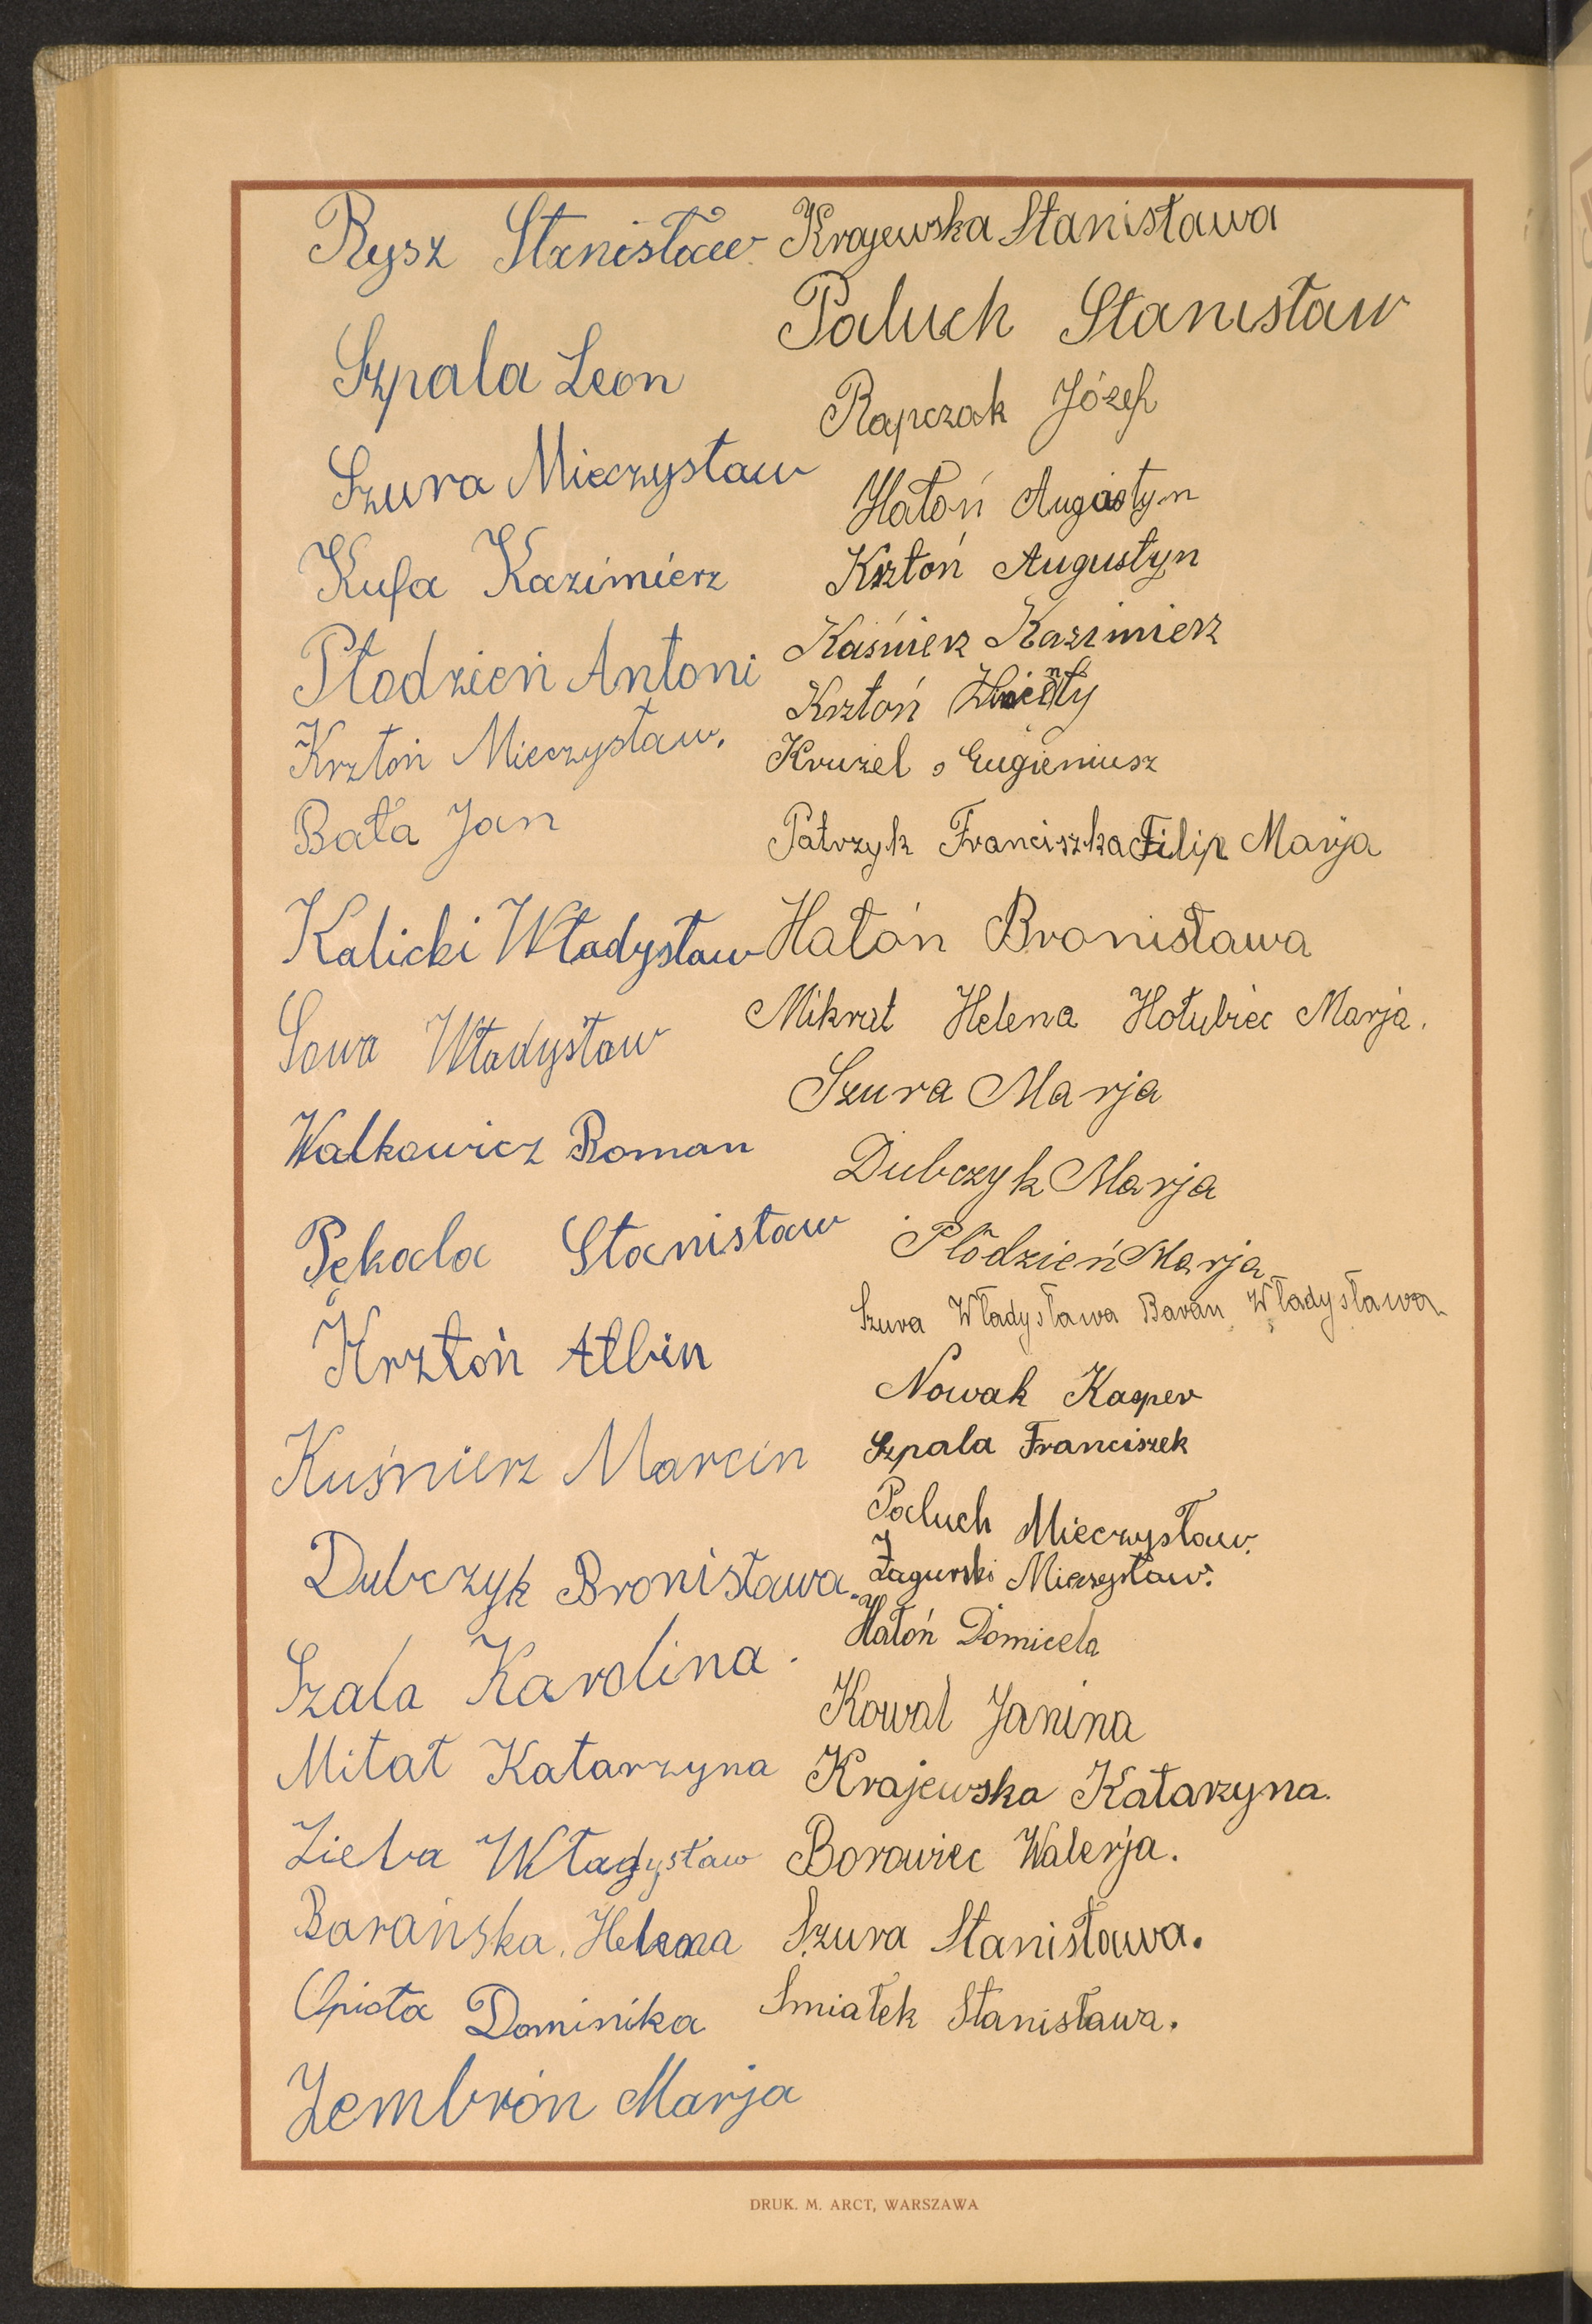 Rysz Stanisław
Szpala Leon
Szura Mieczysław
Kufa Kazimierz
Płodzień Antoni
Krztoń Mieczysław.
Bała Jan
Kalicki Władysław
Sowa Władysław
Walkowicz Roman
Pękala Stanisław
Krztoń Albin
Kuśnierz Marcin
Dubczyk Bronisława.
Szala Karolina.
Mitał Katarzyna
Zieba Władysław
Barańska. Helena
Opioła Dominika
Zembroń Marja
Krajewska Stanisława
Paluch Stanisław
Rapczak Józef
Hałoń Augustyn
Krztoń Augustyn
Kaśnierz Kazimierz
Krztoń
Kruzel Eugieniusz
Patrzyk Franciszka Filip Marja
Hałoń Bronisława
Mikrut Helena Hołubiec Marja.
Szura Marja
Dubczyk Marja
Płodzień Marja
Szura Władysława Baran Władysława
Nowak Kasper
Szpala Franciszek
Paluch Mieczysław.
Zagurski Mieczysław.
Hałoń Domicela
Kowal Janina
Krajewska Katarzyna.
Borowiec Walerja.
Szura Stanisława.
Smiałek Stanisława.
DRUK. M. ARCT, WARSZAWA